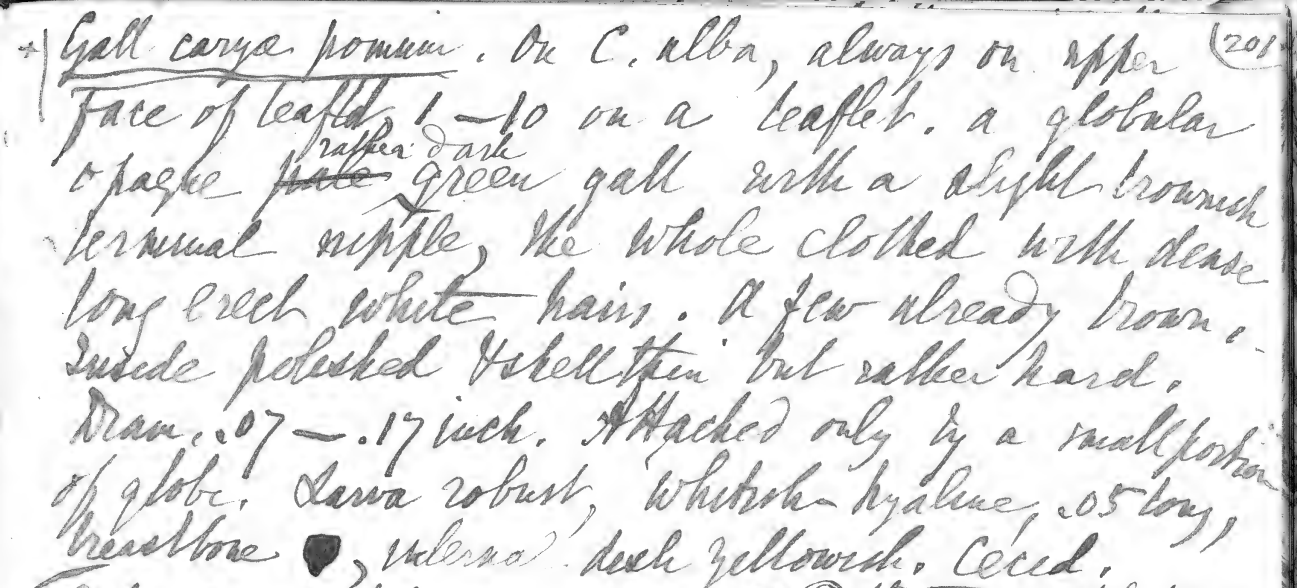 Gall caryæ pomum. On C. alba, always on upper (201
face of leaflet, 1—10 on a leaflet. a globular
rather dark
opaque pale green gall with a slight brownish
terminal nipple, the whole clothed with dense
long erect white hairs. A few already brown.
Inside polished & shell thin but rather hard.
Diam. .07—.17 inch. Attached only by a small portion
of globe. Larva robust, whitish-hyaline, .05 long,
breastbone , internal yellowish. Cecid.